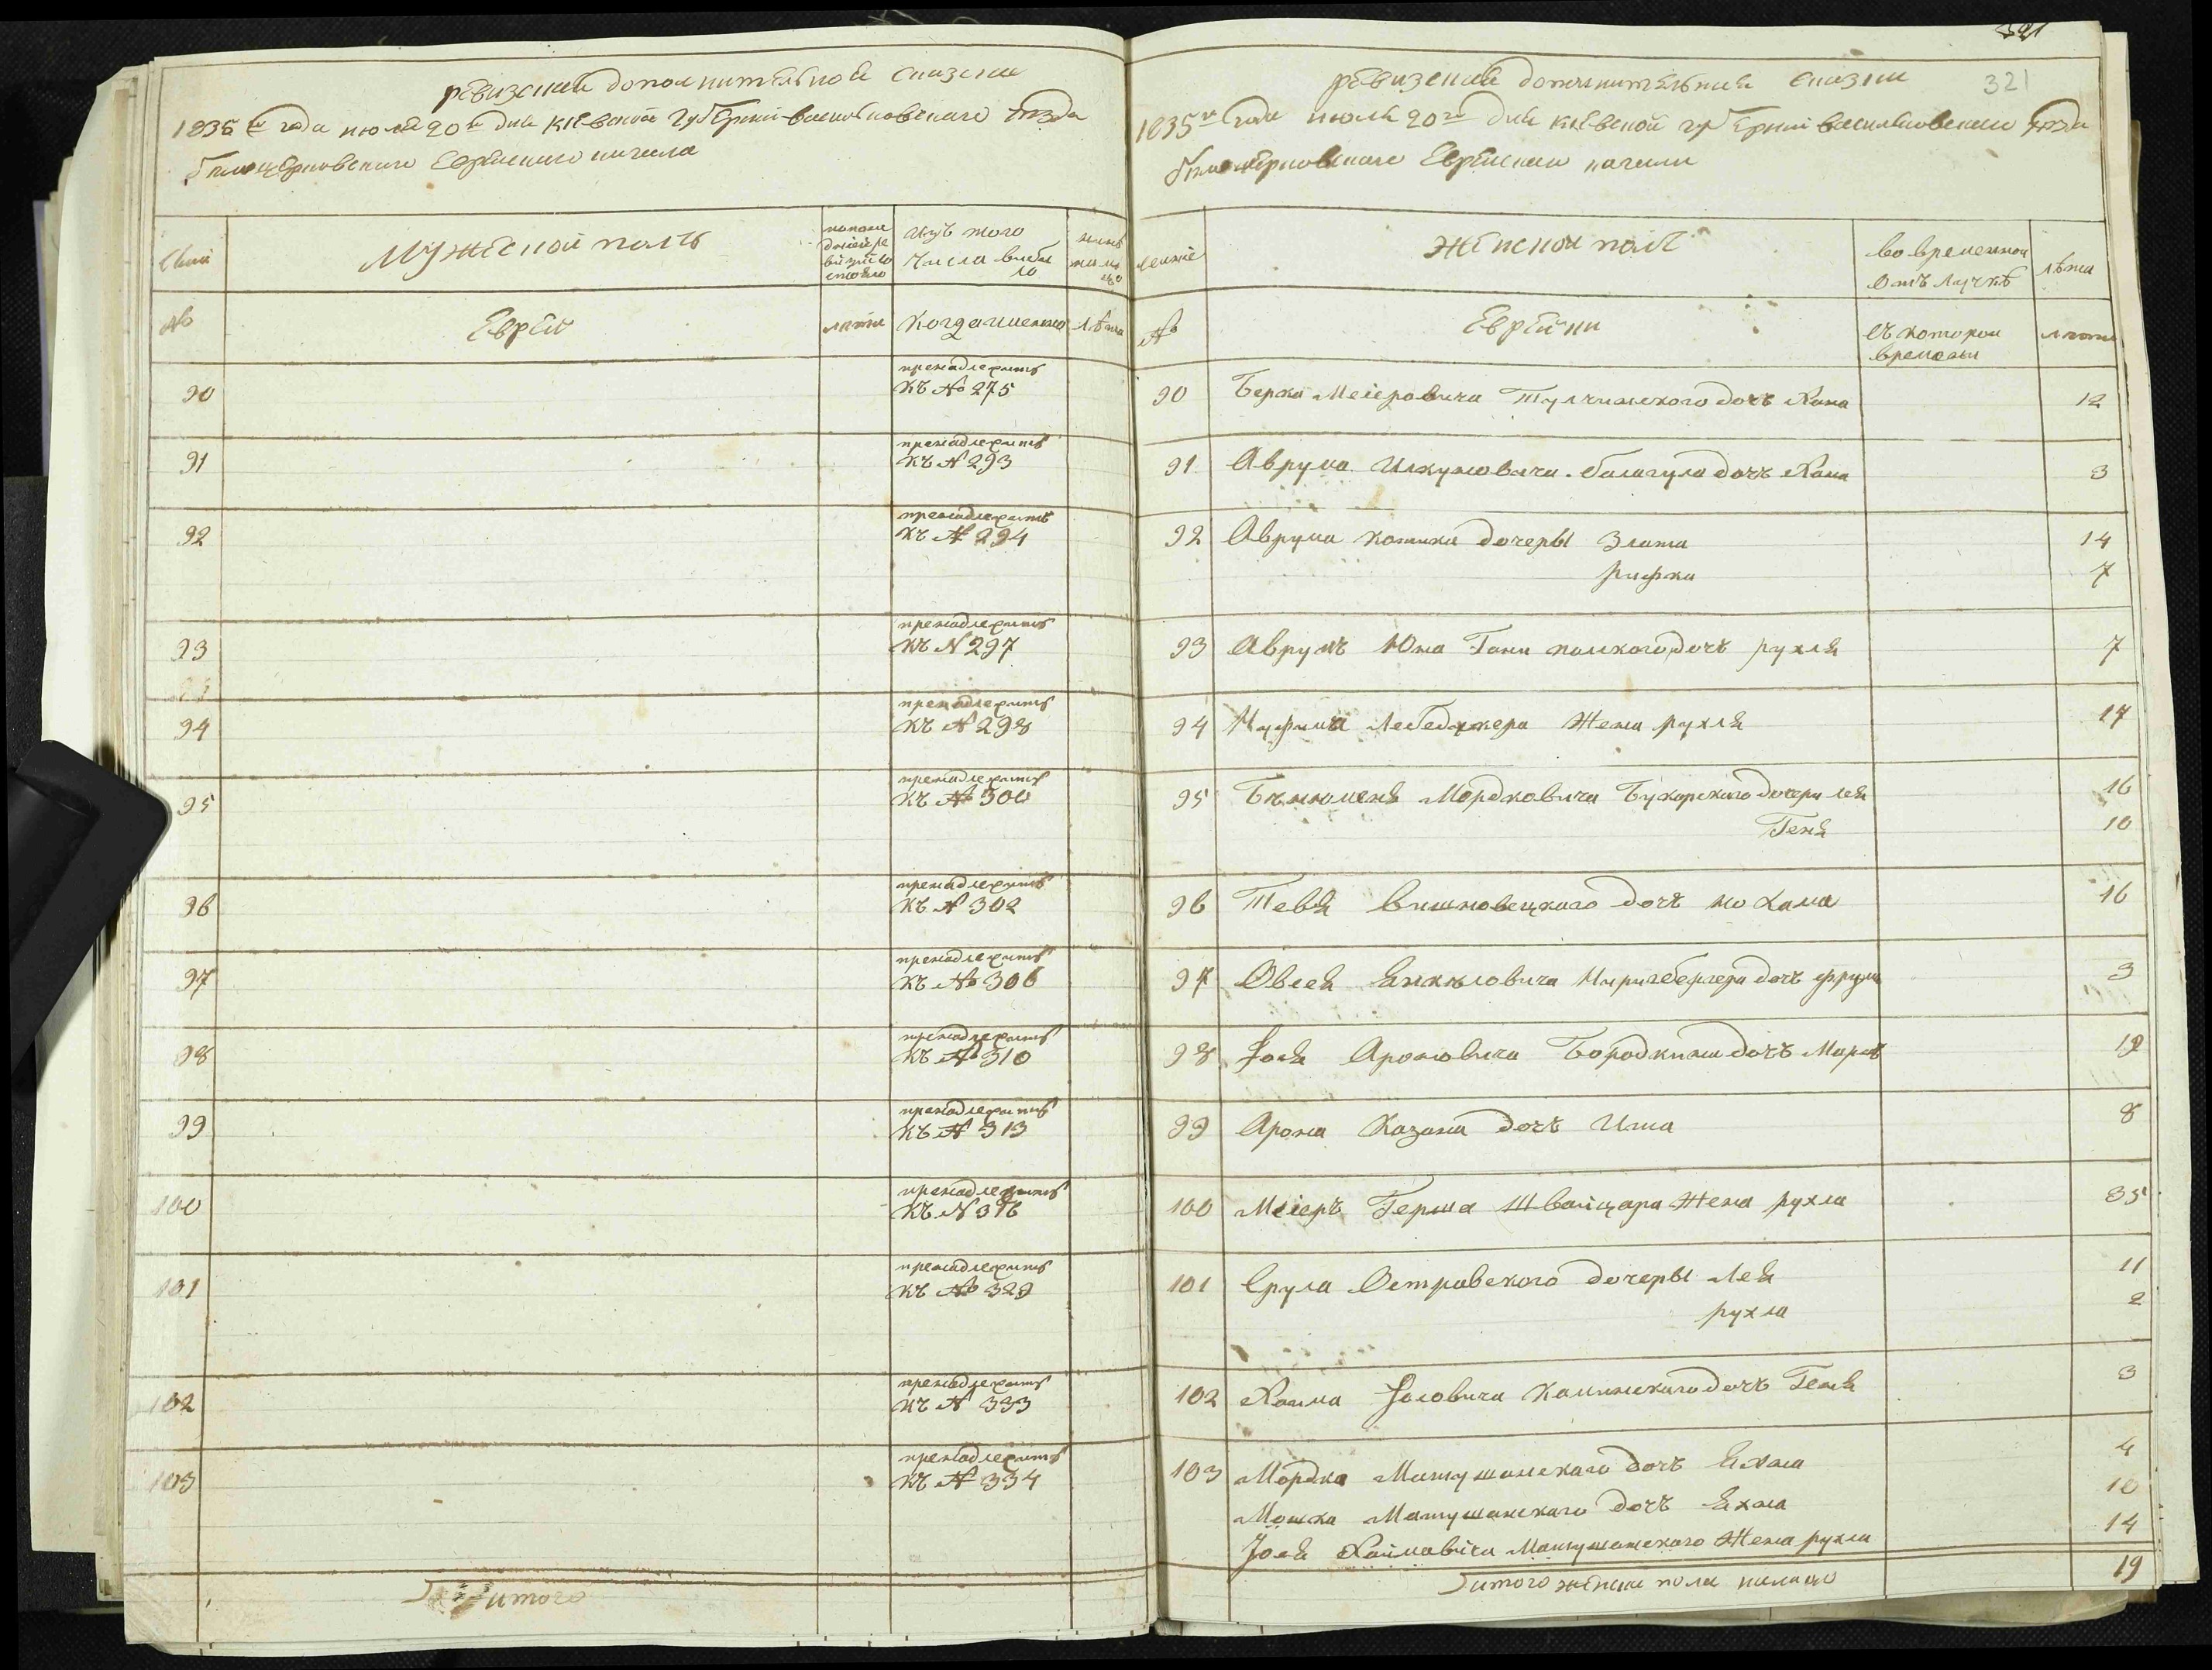 ревизской дополнительной сказки
1835го года июля 20го дня Киевской Губернии Васильковского уезда
Белоцерковского Еврейского кагала
Мужеской полъ
изъ того
числа выбы
ло
№
Еврей
лета
когда именно
лѣта
90
принадлежитъ
къ № 275
91
принадлежитъ
къ № 293
92
принадлежитъ
къ № 294
93
принадлежитъ
къ № 297
94
принадлежитъ
къ № 298
95
принадлежитъ
къ № 300
96
принадлежитъ
къ № 302
97
принадлежитъ
къ № 306
98
принадлежитъ
къ № 310
99
принадлежитъ
къ № 313
100
принадлежитъ
къ № 316
101
принадлежитъ
къ № 329
102
принадлежитъ
къ № 333
103
принадлежитъ
къ № 334
итого
321
321
ревизской дополнительной сказки
1835го года июля 20го дня Киевской губернии Васильковского уезда
Белоцерковского Еврейского кагала
Женской полъ
во временной
отъ лучкѣ
лѣта
№
Еврейки
съ которои
времени
лета
90 Берка Меiеровича Тулчинского дочъ Хана 12
91 Аврума Ицкуновича Балагула дочъ Хана 3
92 Аврума Котика дочеры Злата 14
рифка 7
93 Аврумъ Юна Гани полского дочъ рухля 7
94 Лебединера Жена рухля 17
95 Мордковича Бухарского дочери лея 16
Геня 10
96 Тевя Вишновецкаго дочъ нохама 16
97 Овсея Янкеловича дочъ фрума 3
98 Iося Ароновича Бородкина дочъ Маря 12
99 Арона Казана дочъ Ита 8
100 Меiеръ Герша Швайцара Жена рухла 35
101 Срула Островского дочеры Лея 11
рухла 2
102 Хаима Iоловича Каминскаго дочъ Геня 3
103 Мордка Матушанскаго дочъ Яхна 4
Мошка Матушанскаго дочъ Яхна 10
Iося Хаимовича Матушанскаго Жена рухла 14
итого женска пола налицо 19